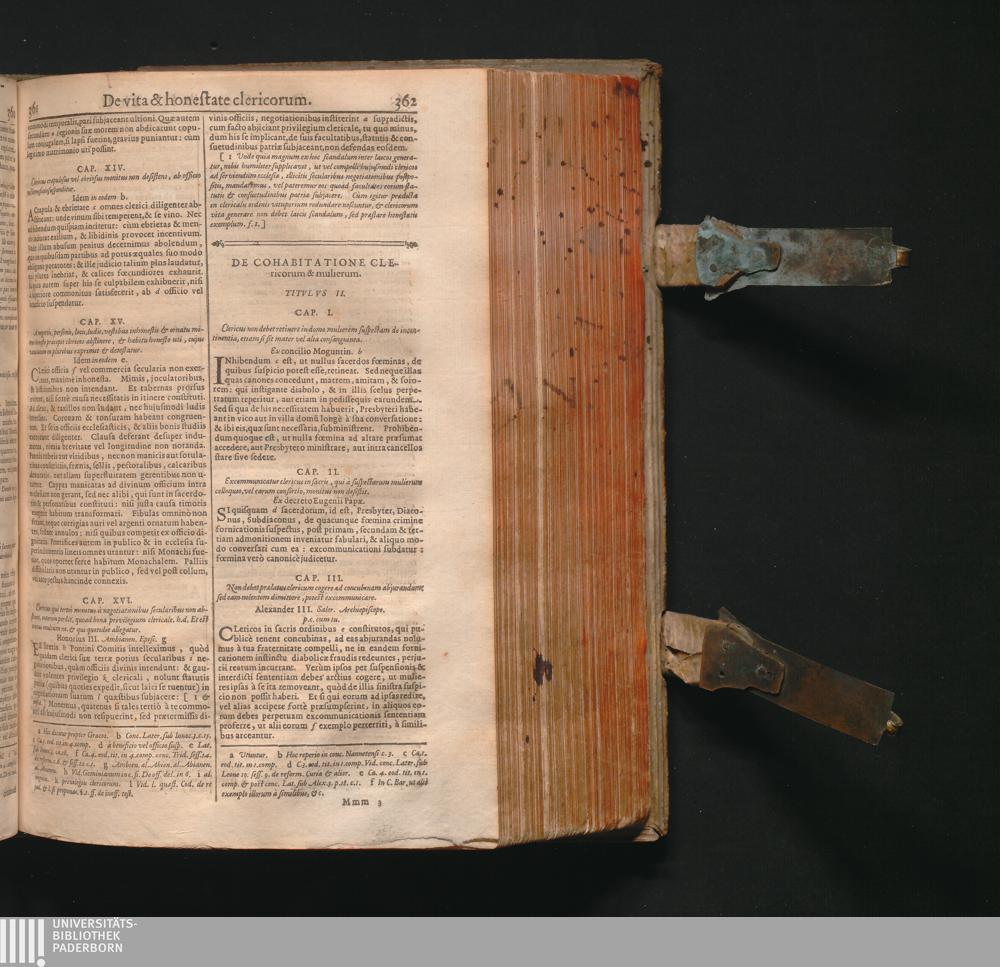 361 De vita & honestate clericorum. 362
commodi temporalis, pari subjaceant ultioni. Qui autem
secundum a regionis suæ morem non abdicarunt copu-
lam conjugalem, si lapsi fuerint, gravius puniantur: cum
legitimo matrimonio uti possint.
CAP. XIV.
Clericus crapulosus vel ebriosus monitus non desistens, ab officio
suspenditur.
Idem in eodem b.
A Crapula & ebrietate c omnes clerici diligenter ab-
stineant: unde vinum sibi temperent, & se vino. Nec
ad bibendum quispiam incitetur: cùm ebrietas & men-
tis inducat exilium, & libidinis provocet incentivum.
Unde illum abusum penitus decernimus abolendum,
quo in quibusdam partibus ad potus æquales suo modo
se obligant potatores: & ille judicio talium plus laudatur,
qui plures inebriat, & calices fœcundiores exhaurit.
Si quis autem super his se culpabilem exhibuerit, nisi
à superiore commonitus satisfecerit, ab d officio vel
beneficio suspendatur.
CAP. XV.
A negotiis, personis, locis, ludis, vestibus inhonestis & ornatu mi-
nus honesto præcipit clericos abstinere, & habitu honesto uti, cujus
qualitatem in pluribus exprimit & detestatur.
Idem in eodem e.
Clerici officia f vel commercia secularia non exer-
ceant, maximè inhonesta. Mimis, joculatoribus,
& histrionibus non intendant. Et tabernas prorsus
evitent, nisi fortè causa necessitatis in itinere constituti.
Ad aleas, & taxillos non ludant, nec hujusmodi ludis
intersint. Coronam & tonsuram habeant congruen-
tem. Et se in officiis ecclesiasticis, & aliis bonis studiis
exerceant diligenter. Clausa deferant desuper indu-
menta, nimia brevitate vel longitudine non notanda.
Pannis rubeis aut viridibus, nec non manicis aut sotula-
ribus consutitiis, frænis, sellis, pectoralibus, calcaribus
deauratis, aut aliam superfluitatem gerentibus non u-
tantur. Cappas manicatas ad divinum officium intra
ecclesiam non gerant, sed nec alibi, qui sunt in sacerdo-
tio & personatibus constituti: nisi justa causa timoris
exegerit habitum transformari. Fibulas omninò non
ferant, neque corrigias auri vel argenti ornatum haben-
tes, sed nec annulos: nisi quibus competit ex officio di-
gnitatis. Pontifices autem in publico & in ecclesia su-
perindumentis lineis omnes utantur: nisi Monachi fue-
rint, quos oportet ferre habitum Monachalem. Palliis
diffibulatis non utantur in publico, sed vel post collum,
vel ante pectus hincinde connexis.
CAP. XVI.
Clericus qui tertiò monitus à negotiationibus secularibus non ab-
stinet,
Honorius III. Ambianen. Episc. g
EX literis h Pontini Comitis intelleximus, quòd
quidam clerici suæ terræ potius secularibus i ne-
gotiationibus, quàm officiis divinis intendunt: & gau-
dere volentes privilegio k clericali, nolunt statutis
patriæ (quibus quoties expedit, sicut laici se tuentur) in
negotiationum suarum l quæstibus subjacere: [ 1 &
Monemus, quatenus si tales tertiò à te commo-
niti ab hujusmodi non resipuerint, sed prætermissis di-
a Hoc dicitur propter Græcos. b Conc. Later. sub Innoc.
in 4. comp. d à beneficio vel officio susp. e Lat.
f Ca. 2. eod. tit. in 4. comp. conc. Trid. sess. 14.
g Ambien. al. Abien. al. Abianen.
h Vid. Geminianum inc. si. De off. del. in 6. i al.
k privilegiis clericorum. l Vid. l. quæst. Cod. de re
vinis officiis, negotiationibus institerint a supradictis,
cum facto abjiciant privilegium clericale, tu quo minus,
dum his se implicant, de suis facultatibus, statutis & con-
suetudinibus patriæ subjaceant, non defendas eosdem.
[ 1 Unde quia magnum ex hoc scandalum inter laicos genera-
tur, nobis humiliter supplicavit, ut vel compelli hujusmodi clericos
ad serviendum ecclesiæ, illicitis secularibus negotiationibus postpo-
sitis, mandaremus, vel pateremur eos quoad facultates eorum sta-
tutis & consuetudinibus patriæ subjacere. Cum igitur prædicta
in clericalis ordinis vituperium redundare noscantur, & clericorum
vita generare non debet laicis scandalum, sed præstare honestatis
exemplum. f. 1. ]
DE COHABITATIONE CLE-
ricorum & mulierum.
TITULVS II.
CAP. I.
Clericus non debet retinere in domo mulierem suspectam de incon-
tinentia, etiam si sit mater vel alia consanguinea.
Ex concilio Moguntin. b
INhibendum c est, ut nullus sacerdos fœminas, de
quibus suspicio potest esse, retineat. Sed neque illas
quas canones concedunt, matrem, amitam, & soro-
rem: qui instigante diabolo, & in illis scelus perpe-
tratum reperitur, aut etiam in pedissequis earundem.
Sed si qua de his necessitatem habuerit, Presbyteri habe-
ant in vico aut in villa domū longè à sua conversatione:
& ibi eis, quæ sunt necessaria, subministrent. Prohiben-
dum quoque est, ut nulla fœmina ad altare præsumat
accedere, aut Presbytero ministrare, aut intra cancellos
stare sive sedere.
CAP. II.
Excommunicatur clericus in sacris, qui à suspectarum mulierum
colloquio, vel earum consortio, monitus non desistit.
Ex decreto Eugenii Papæ.
SI quisquam d sacerdotum, id est, Presbyter, Diaco-
nus, Subdiaconus, de quacunque fœmina crimine
fornicationis suspectus, post primam, secundam & ter-
tiam admonitionem inveniatur fabulari, & aliquo mo-
do conversari cum ea: excommunicationi subdatur:
fœmina verò canonicè judicetur.
CAP. III.
Non debet prælatus clericum cogere ad concubinam abjurandum;
sed eam nolentem dimittere, potest excommunicare.
Alexander III. Saler. Archiepiscopo.
p. c. cum tu.
CLericos in sacris ordinibus e constitutos, qui pu-
blicè tenent concubinas, ad eas abjurandas nolu-
mus à tua fraternitate compelli, ne in eandem forni-
cationem instinctu diabolicæ fraudis redeuntes, perju-
rii reatum incurrant. Verùm ipsos per suspensionis &
interdicti sententiam debes arctius cogere, ut mulie-
res ipsas à se ita removeant, quòd de illis sinistra suspi-
cio non possit haberi. Et si qui eorum ad ipsas redire,
vel alias accipere fortè præsumpserint, in aliquos eo-
rum debes perpetuam excommunicationis sententiam
proferre, ut alii eorum f exemplo perterriti, à simili-
bus arceantur.
a Utuntur. b Hoc reperio in conc. Nannetensi c. 3. c Ca. 1.
eod. tit. in 1. comp. d C. 3. eod. tit. in 1. comp. Vid. conc. Later. sub
Leone 10. sess. 9. de reform. Curiæ & alior. e Ca. 4. eod. tit. in 1.
comp. & post conc. Lat. sub Alex. 3. p. 18. c. 1. f In C. Bar, ut alii
exemplo illorum à similibus, & c.
Mmm 3
UNIVERSITÄTS-
BIBLIOTHEK
PADERBORN